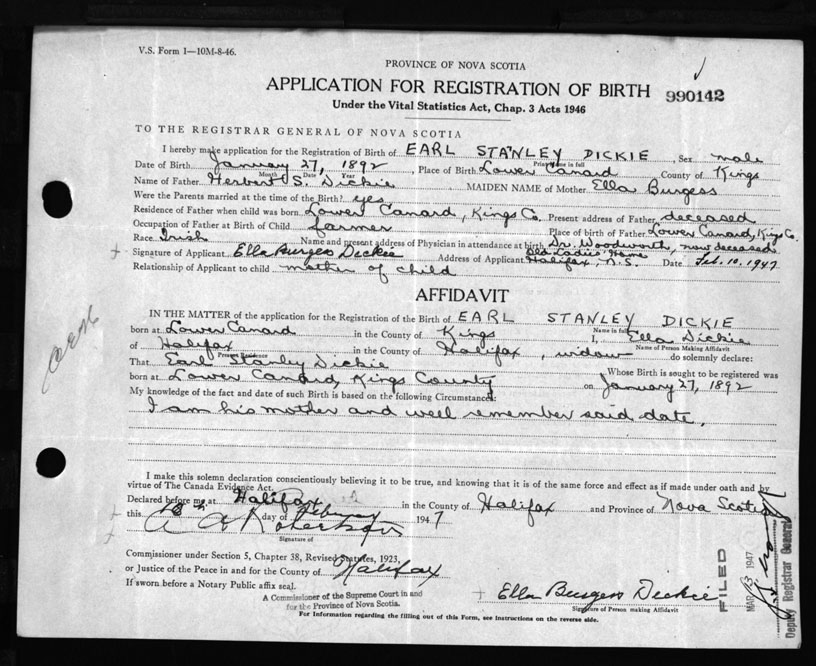 V.S. Form 1—10M-8-46.
PROVINCE OF NOVA SCOTIA
APPLICATION FOR REGISTRATION OF BIRTH 990142
Under the Vital Statistics Act, Chap. 3 Acts 1946
TO THE REGISTRAR GENERAL OF NOVA SCOTIA
I hereby make application for the Registration of Birth of EARL STANLEY DICKIE, Sex male
Print Name in full
Date of Birth January 27, 1892, Place of Birth Lower Canard County of Kings
Month Date Year
Name of Father Herbert S. Dickie MAIDEN NAME of Mother Ella Burgess
Were the Parents married at the time of the Birth? yes
Residence of Father when child was born Lower Canard, Kings Co. Present address of Father deceased
Occupation of Father at Birth of Child farmer Place of birth of Father Lower Canard, Kings Co.
Race Irish Name and present address of Physician in attendance at birth Dr. Woodworth, now deceased
Signature of Applicant Ella Burgess Dickie Address of Applicant Old Ladies' Home Halifax, N.S. Date Feb. 10, 1947
Relationship of Applicant to child mother of child
AFFIDAVIT
IN THE MATTER of the application for the Registration of Birth of EARL STANLEY DICKIE
Name in full
born at Lower Canard in the County of Kings I, Ella Dickie
Name of Person Making Affidavit
of Halifax in the County of Halifax, widow do solemnly declare:
Present Residence
That Earl Stanley Dickie Whose Birth is sought to be registered was
born at Lower Canard, Kings County on January 27, 1892
My knowledge of the fact and date of such Birth is based on the following Circumstances:
I am his mother and well remember said date.
I make this solemn declaration conscientiously believing it to be true, and knowing that it is of the same force and effect as if made under oath and by
virtue of The Canada Evidence Act.
Declared before me at Halifax in the County of Halifax and Province of Nova Scotia
this day of February 1947
Signature of
Commissioner under Section 5, Chapter 38, Revised Statutes, 1923,
or Justice of the Peace in and for the County of Halifax
If sworn before a Notary Public affix seal.
A Commissioner of the Supreme Court in and
for the Province of Nova Scotia.
Ella Burgess Dickie
Signature of Person making Affidavit
For Information regarding the filling out of this Form, see instructions on the reverse side.
FILED
MAR 13 1947
Deputy Registrar General